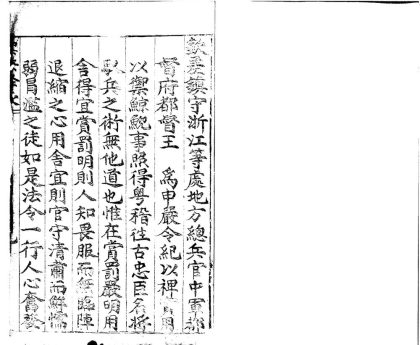 欽差鎮守浙江等處地方總兵官中軍都
督府都督王 為申嚴令紀以裨 用
以禦鯨鯢事照得粵稽往古忠臣名將
兵之術無他道也惟在賞罰嚴明用
舍得宜賞罰明則人知畏服而無臨陣
退縮之心用舍宜則官守清肅而鮮懦
弱冒濫之徒如是法令一行人心奮發